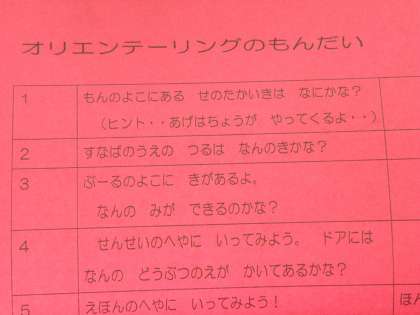 オリエンテーリングのもんだい
1 もんのよこにある せのたかいきは なにかな?
(ヒント・・あげはちょうが やってくるよ・・)
2 すなばのうえの つるは なんのきかな?
3 ぷーるのよこに きがあるよ。
なんの みが できるのかな?
4 せんせいのへやに いってみよう。 ドアには
なんの どうぶつのえが かいてあるかな?
5 えほんのへやに いってみよう!